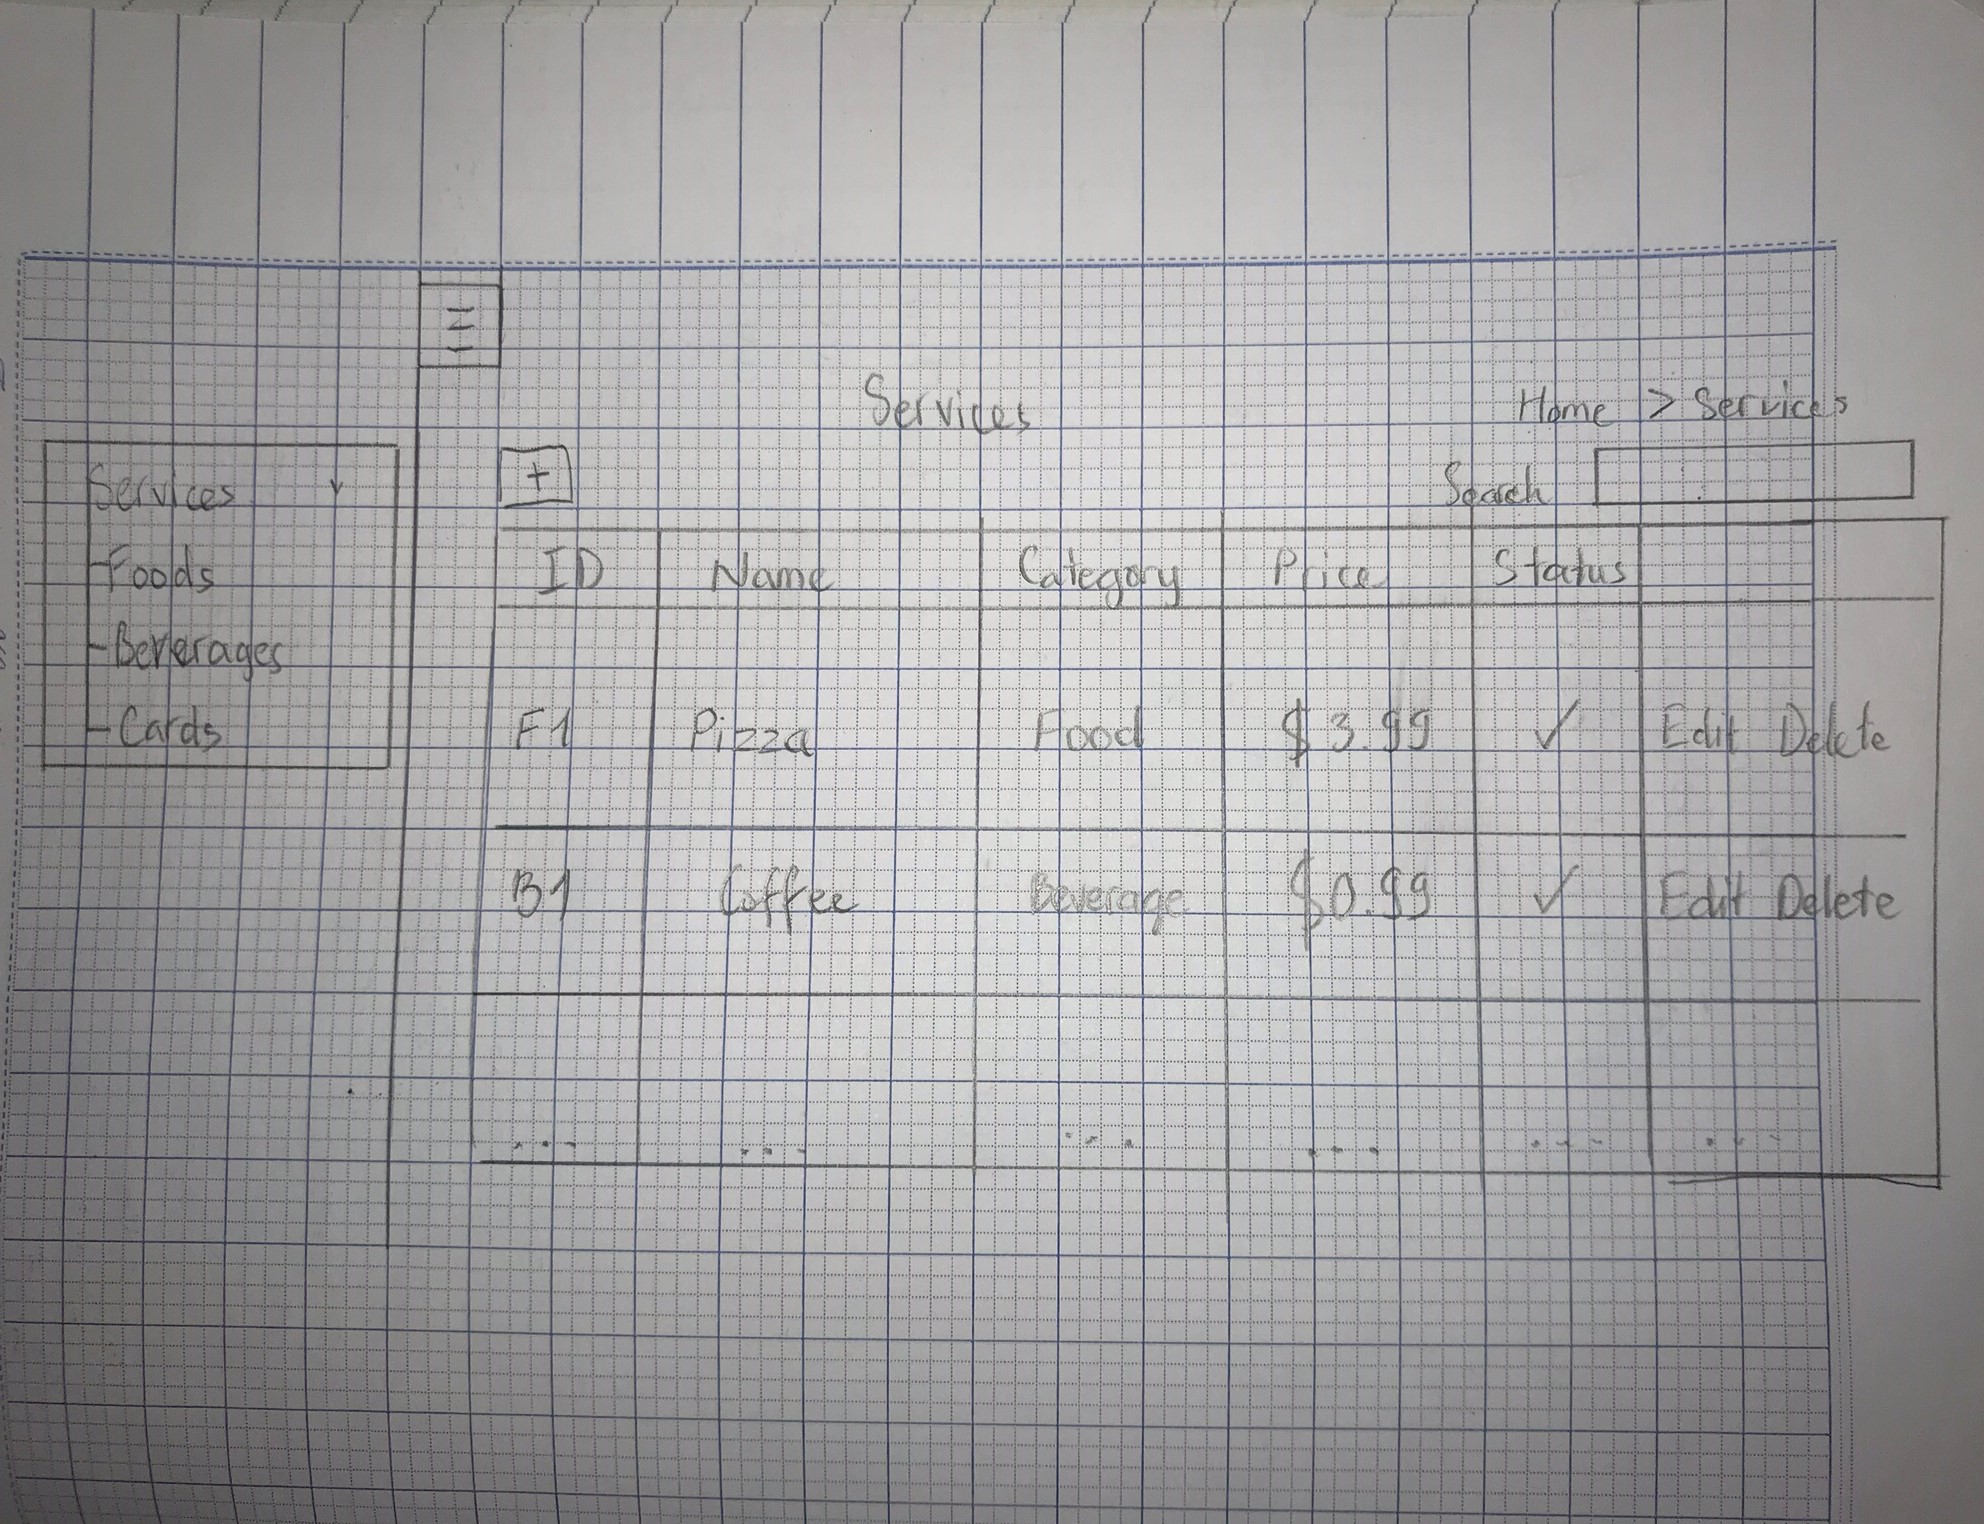 Services
Home > Services
+
Search
Services
- Foods
- Beverages
- Cards
ID Name Category Price Status
F1 Pizza Food $3.99 ✓ Edit Delete
B1 Coffee Beverage $0.99 ✓ Edit Delete
... ... ... ... ... ...